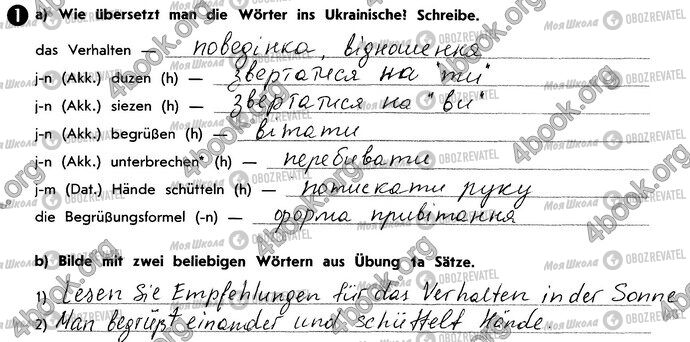 1 a) Wie übersetzt man die Wörter ins Ukrainische? Schreibe.
das Verhalten — поведінка, відношення
j-n (Akk.) duzen (h) — звертатися на "ти"
j-n (Akk.) siezen (h) — звертатися на "ви"
j-n (Akk.) begrüßen (h) — вітати
j-n (Akk.) unterbrechen* (h) — перебивати
j-m (Dat.) Hände schütteln (h) — потискати руку
die Begrüßungsformel (-n) — форма привітання
b) Bilde mit zwei beliebigen Wörtern aus Übung 1a Sätze.
1) Lesen Sie Empfehlungen für das Verhalten in der Sonne
2) Man begrüßt einander und schüttelt Hände.